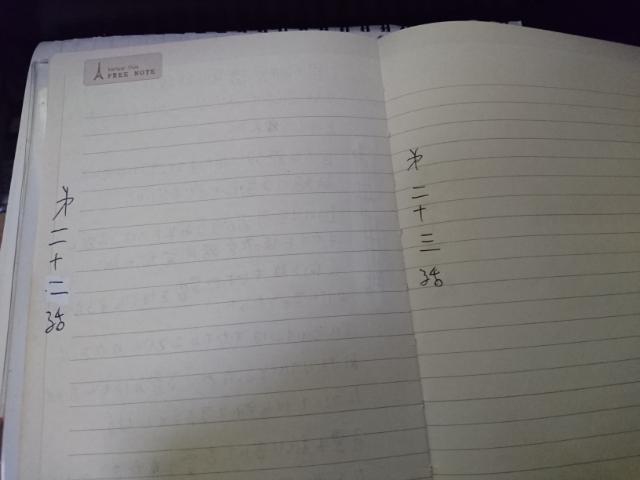 FREE NOTE
第二十二話
第二十三話